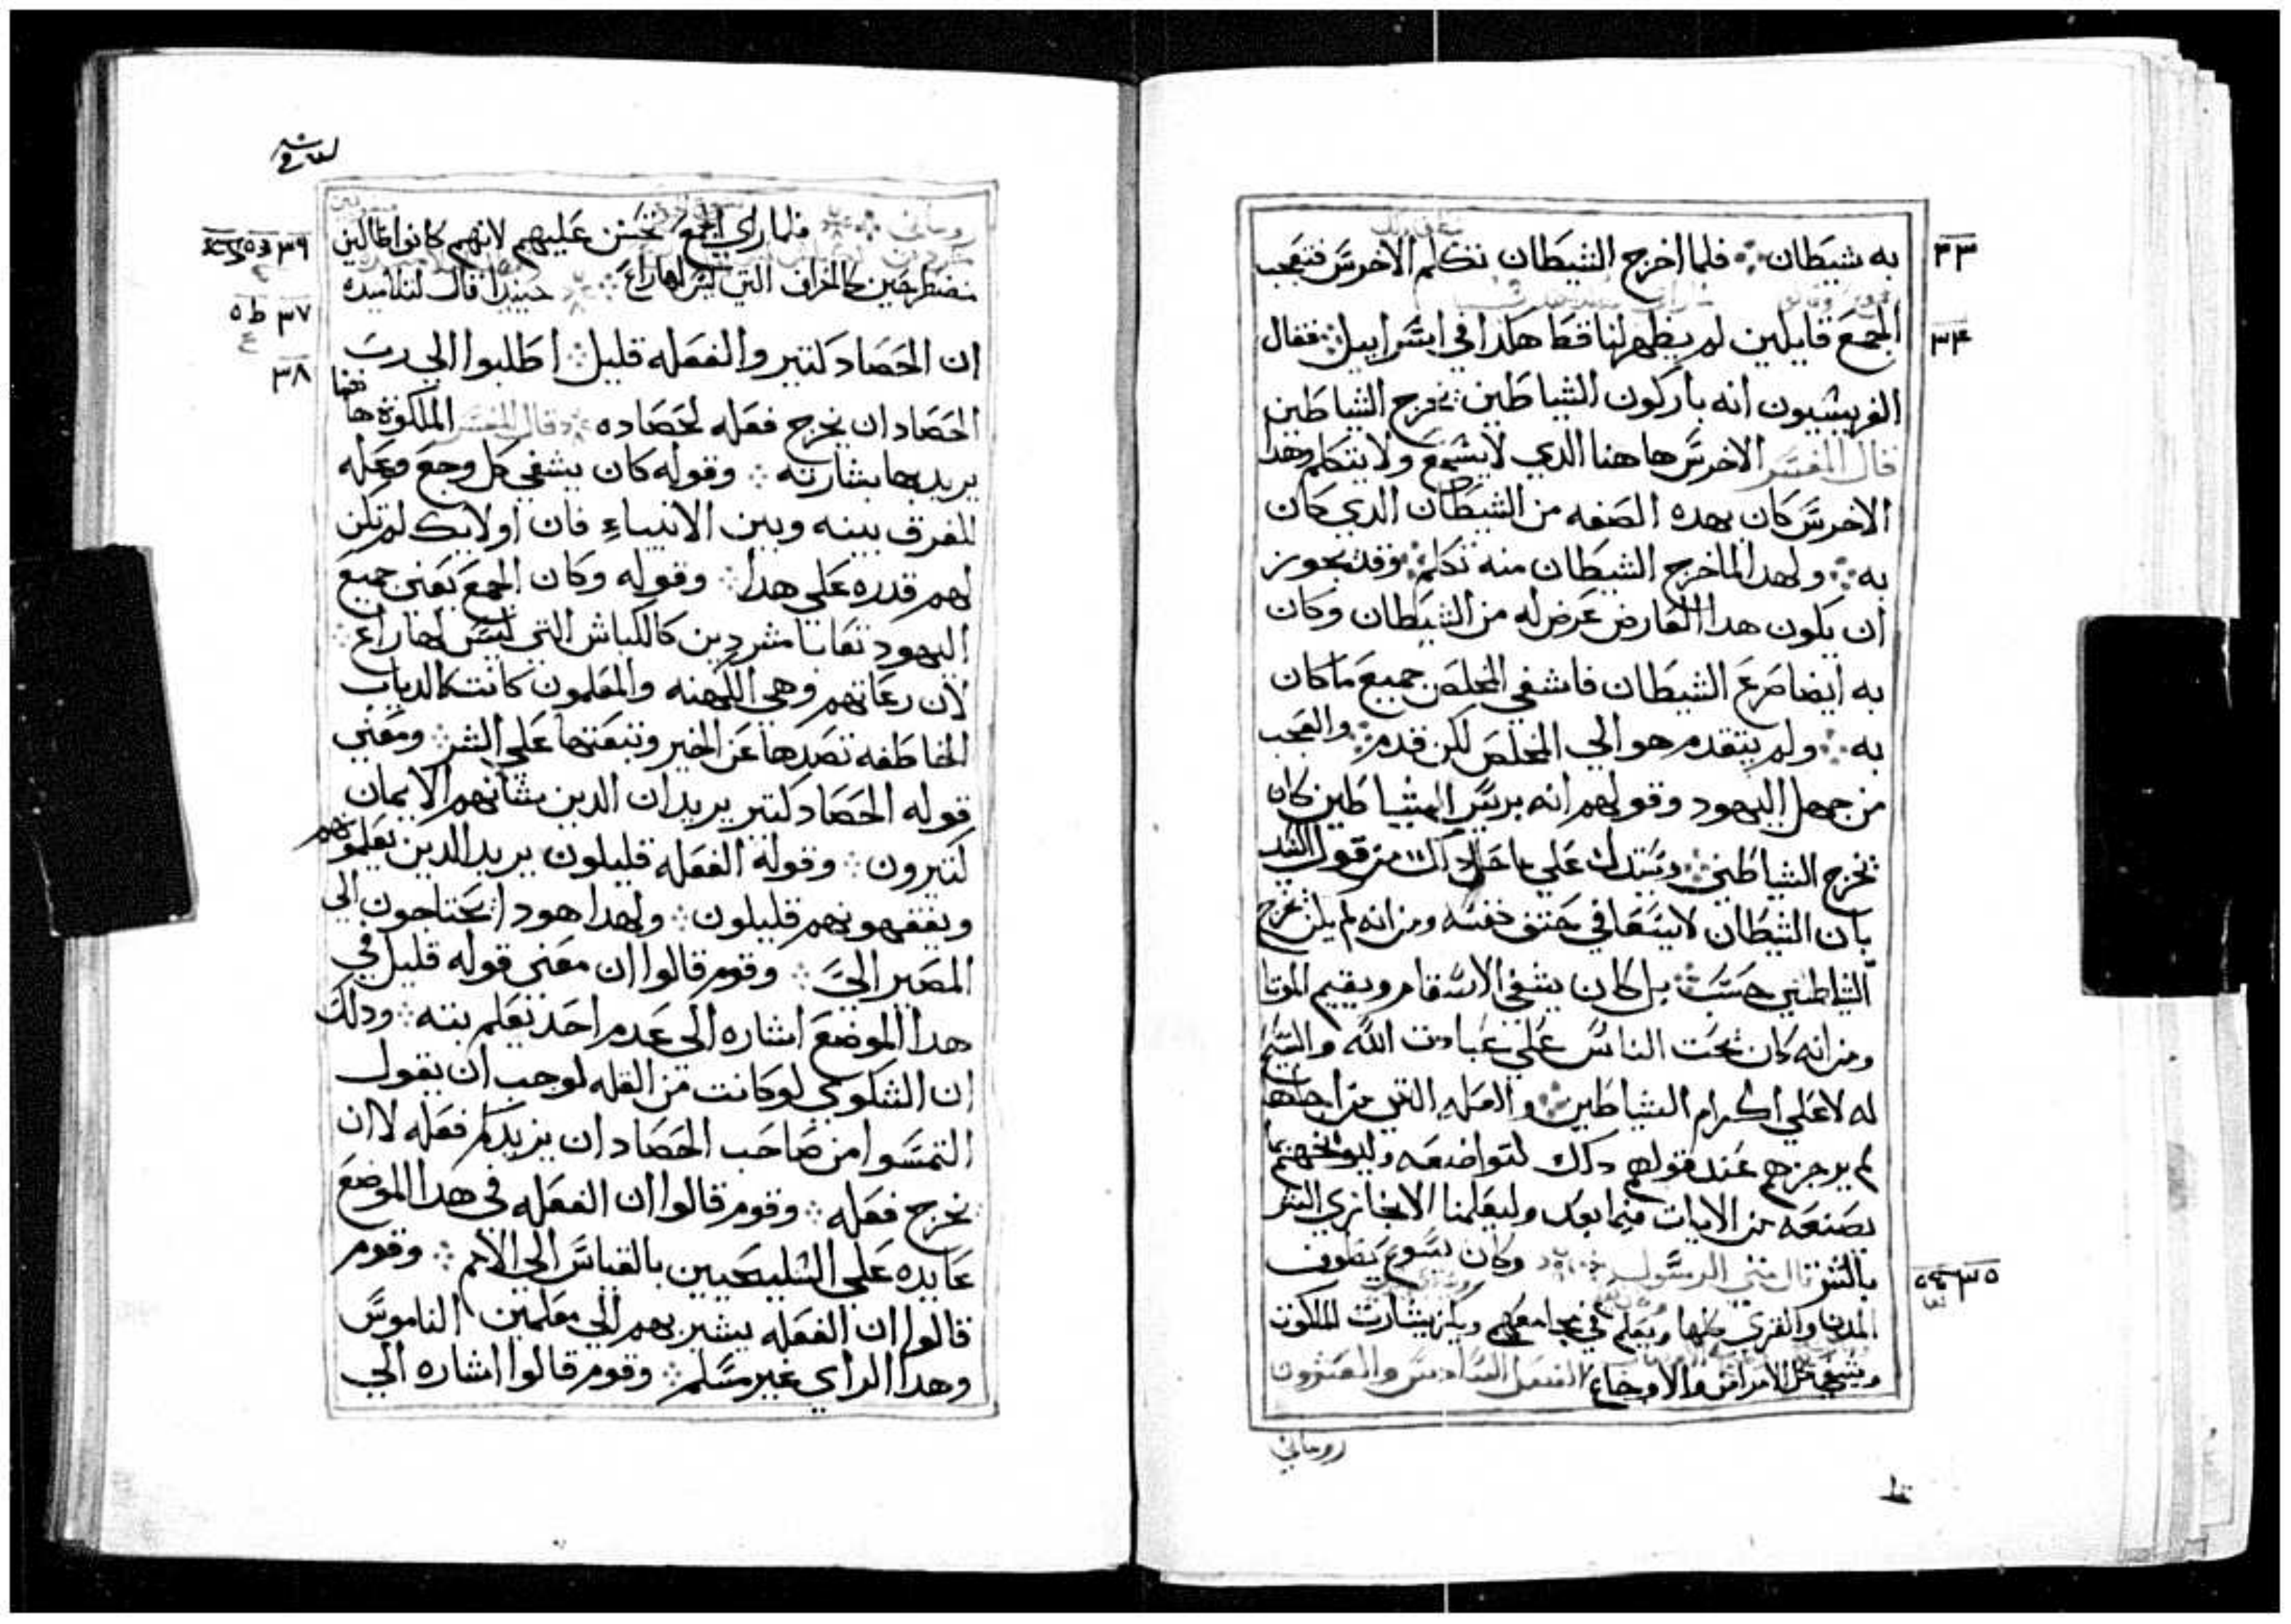 به شيطان ❖ فلما اخرج الشيطان تكلم الاخرس فتعجب
٣٣
الجمع قايلين لم يظهر لنا قط هكذا في اسراييل ❖ فقال
٣٤
الفريسيون انه باركون الشياطين يخرج الشياطين
قال المفسر الاخرس هاهنا الدي لا يسمع ولا يتكلم وهدا
الاخرس كان بهده الصفه من الشيطان الدي كان
به ❖ ولهدا لما خرج الشيطان منه تكلم ❖ وقد يجوز
ان يكون هدا العارض عرض له من الشيطان وكان
به ايضا صرع الشيطان فاشفي المخلص جميع ما كان
به ❖ ولم يتقدم هو الي المخلص لكن قدم ❖ والعجب
من جهل اليهود وقولهم انه بريس الشياطين كان
يخرج الشياطين ❖ ويستدل علي
بان الشيطان لا يسعا في حتف نفسه ومن انه لم يكن يخرج
الشياطين حسب ❖ بل كان يشفي الاسقام ويقيم الموتا
ومن انه كان يحت الناس علي عبادت الله
له لا علي اكرام الشياطين ❖ والعله التي من اجلها
لم يزجرهم عند قولهم دلك لتواضعه وليوبخهم بما
يصنعه من الايات فيما بعد وليعلمنا الا نجازي الشر
بالشر قال متي الرسول ❖ وكان يسوع يطوف
٣٥
المدن والقري كلها ويعلم في مجامعهم ويكرز ببشارت الملكوت
ويشفي كل الامراض والاوجاع الفصل السادس والعشرون
روحاني
روحاني ❖ فلما راي الجمع تحنن عليهم لانهم كانوا ضالين
٣٦
منطرحين كالخراف التي ليس لها راع ❖ حينيدا قال لتلاميده
٣٧
ان الحصاد كتير والفعله قليل ❖ اطلبوا الي رب
٣٨
الحصاد ان يخرج فعله لحصاده ❖ قال المفسر الملكوة هاهنا
يريد بها بشارته ❖ وقوله كان يشفي كل وجع وعله
للفرق بينه وبين الانبياء فان اولايك لم تكن
لهم قدره علي هدا ❖ وقوله وكان الجمع يعني جميع
اليهود تعابا مشردين كالكباش التي ليس لها راع ❖
لان رعاتهم وهي الكهنه والمعلمون كانت كالدياب
الخاطفه تصدها عن الخير وتبعتها علي الشر ❖ ومعني
قوله الحصاد كتير يريد ان الدين شانهم الايمان
كتيرون ❖ وقوله الفعله قليلون يريد الدين يعلمونهم
ويفقهونهم قليلون ❖ ولهدا هودا يحتاجون الي
المصير الي ❖ وقوم قالوا ان معني قوله قليل في
هدا الموضع اشاره الي عدم احد تعلم بته ❖ ودلك
ان الشكوي لو كانت من القله لوجب ان يقول
التمسوا من صاحب الحصاد ان يزيدكم فعله لا ان
يخرج فعله ❖ وقوم قالوا ان الفعله في هدا الموضع
عايده علي السليحيين بالقياس الي الامم ❖ وقوم
قالوا ان الفعله يشير بهم الي معلمين الناموس
وهدا الراي غير مسلم ❖ وقوم قالوا اشاره الي